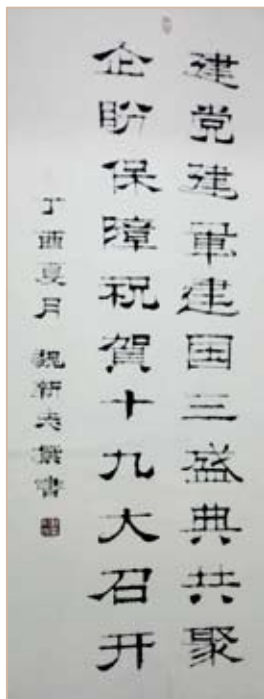 建党建軍建国三盛典共聚
企盼保障祝賀十九大召开
丁酉夏月 魏新志撰書